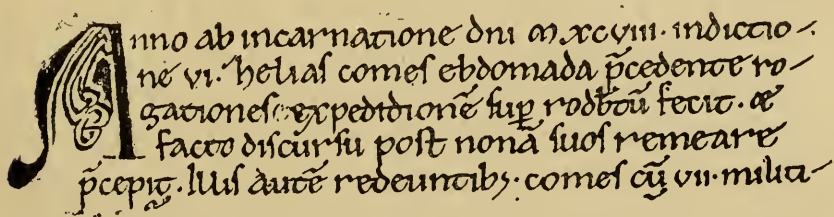 Anno ab incarnatione dni M.XC.VIII. indictio-
ne vi. helias comes ebdomada p̄cedente ro-
gationes expeditionē sup̱ rodb̄tū fecit. &
facto discursu post nonā suos remeare
p̄cepit. Illis autē redeuntib; comes cū vii. militi-